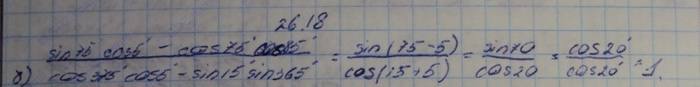 26.18
б) sin75° cos5° - cos75° cos85° / cos375° cos5° - sin15° sin365° = sin(75-5) / cos(15+5) = sin70 / cos20 = cos20° / cos20° = 1.